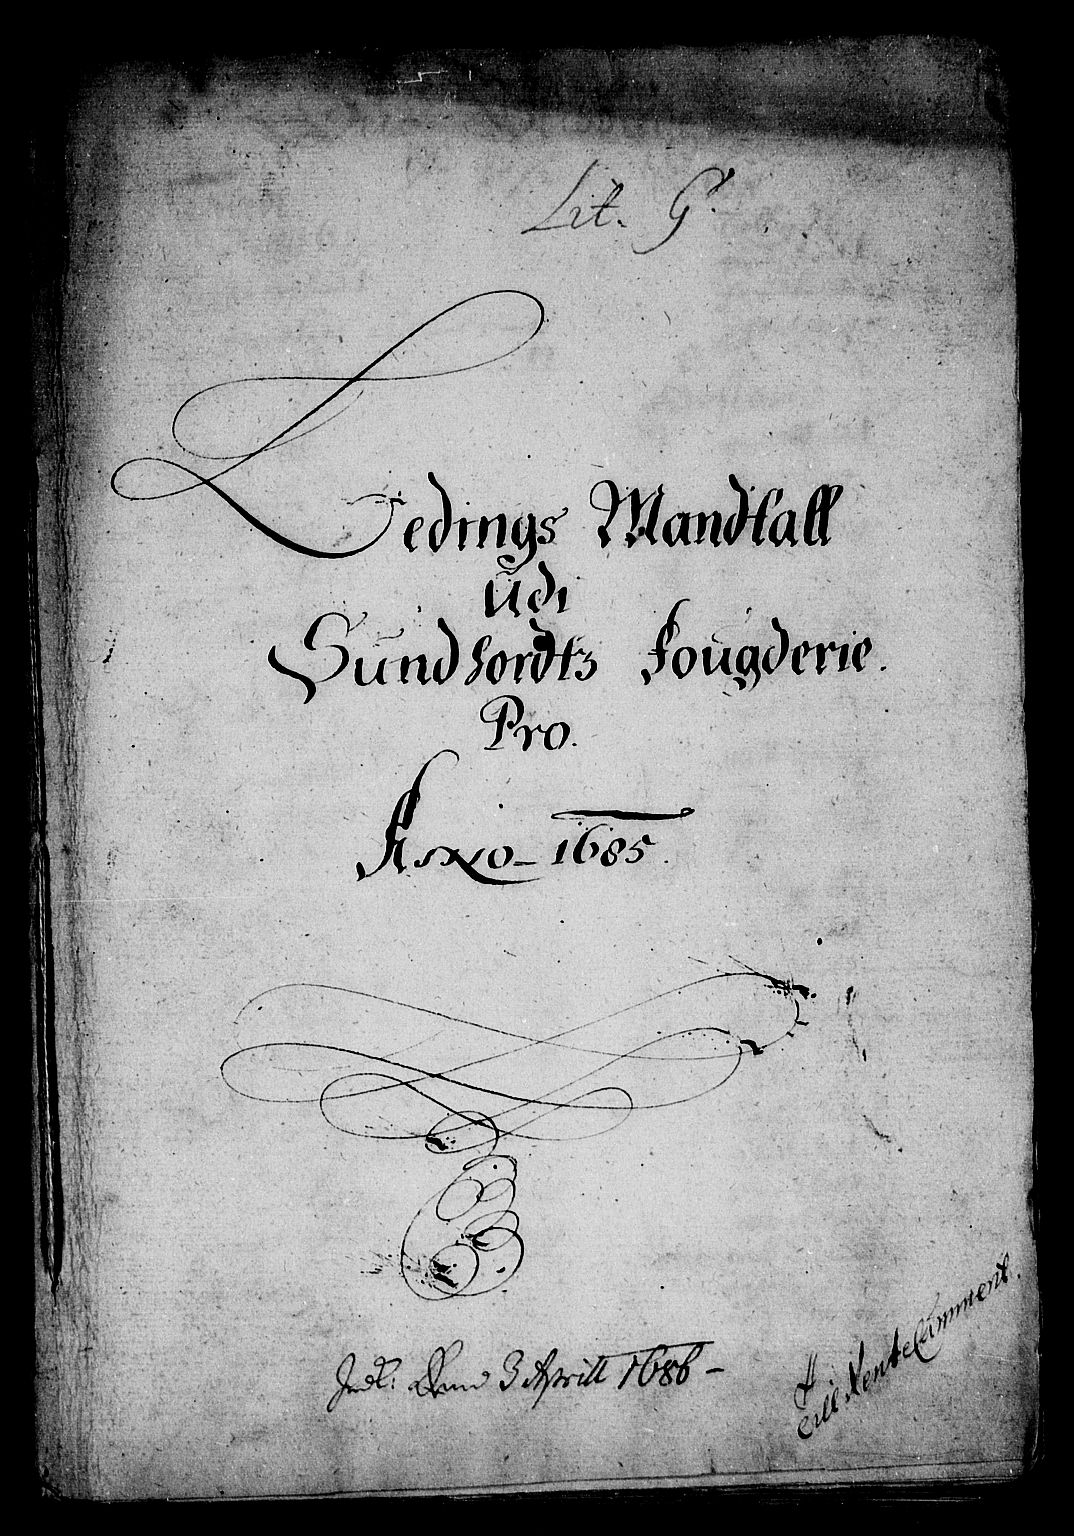 Lit. G.
Ledings Mandtall
Udi
Sundhordtz Fougderie.
Pro.
Anno 1685.
Indl: Denn 3 Aprill 1686
Till Rentecammeret.